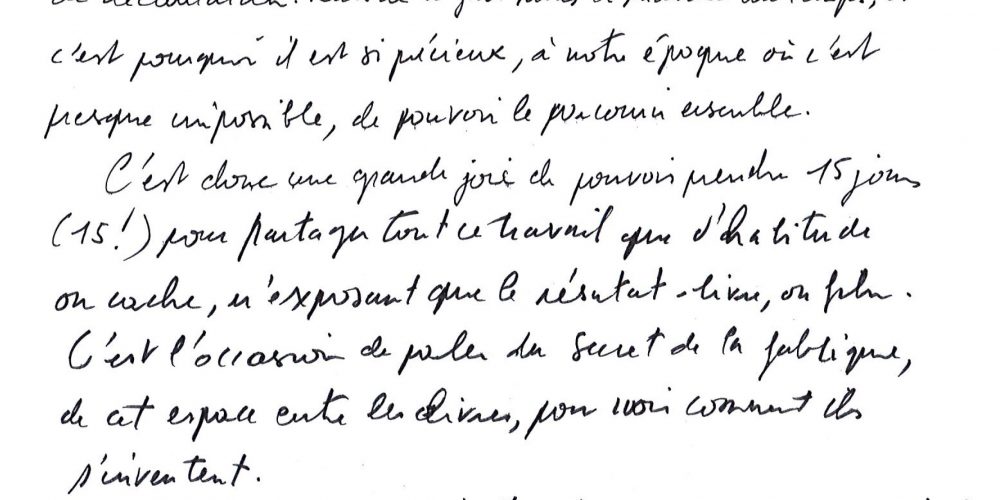 c'est pourquoi il est si précieux, à notre époque où c'est
presque impossible, de pouvoir le parcourir ensemble.
C'est donc une grande joie de pouvoir prendre 15 jours
(15!) pour partager tout ce travail que d'habitude
on cache, n'exposant que le résultat - livre, ou film.
C'est l'occasion de parler du secret de la fabrique,
de cet espace entre les livres, pour voir comment ils
s'inventent.